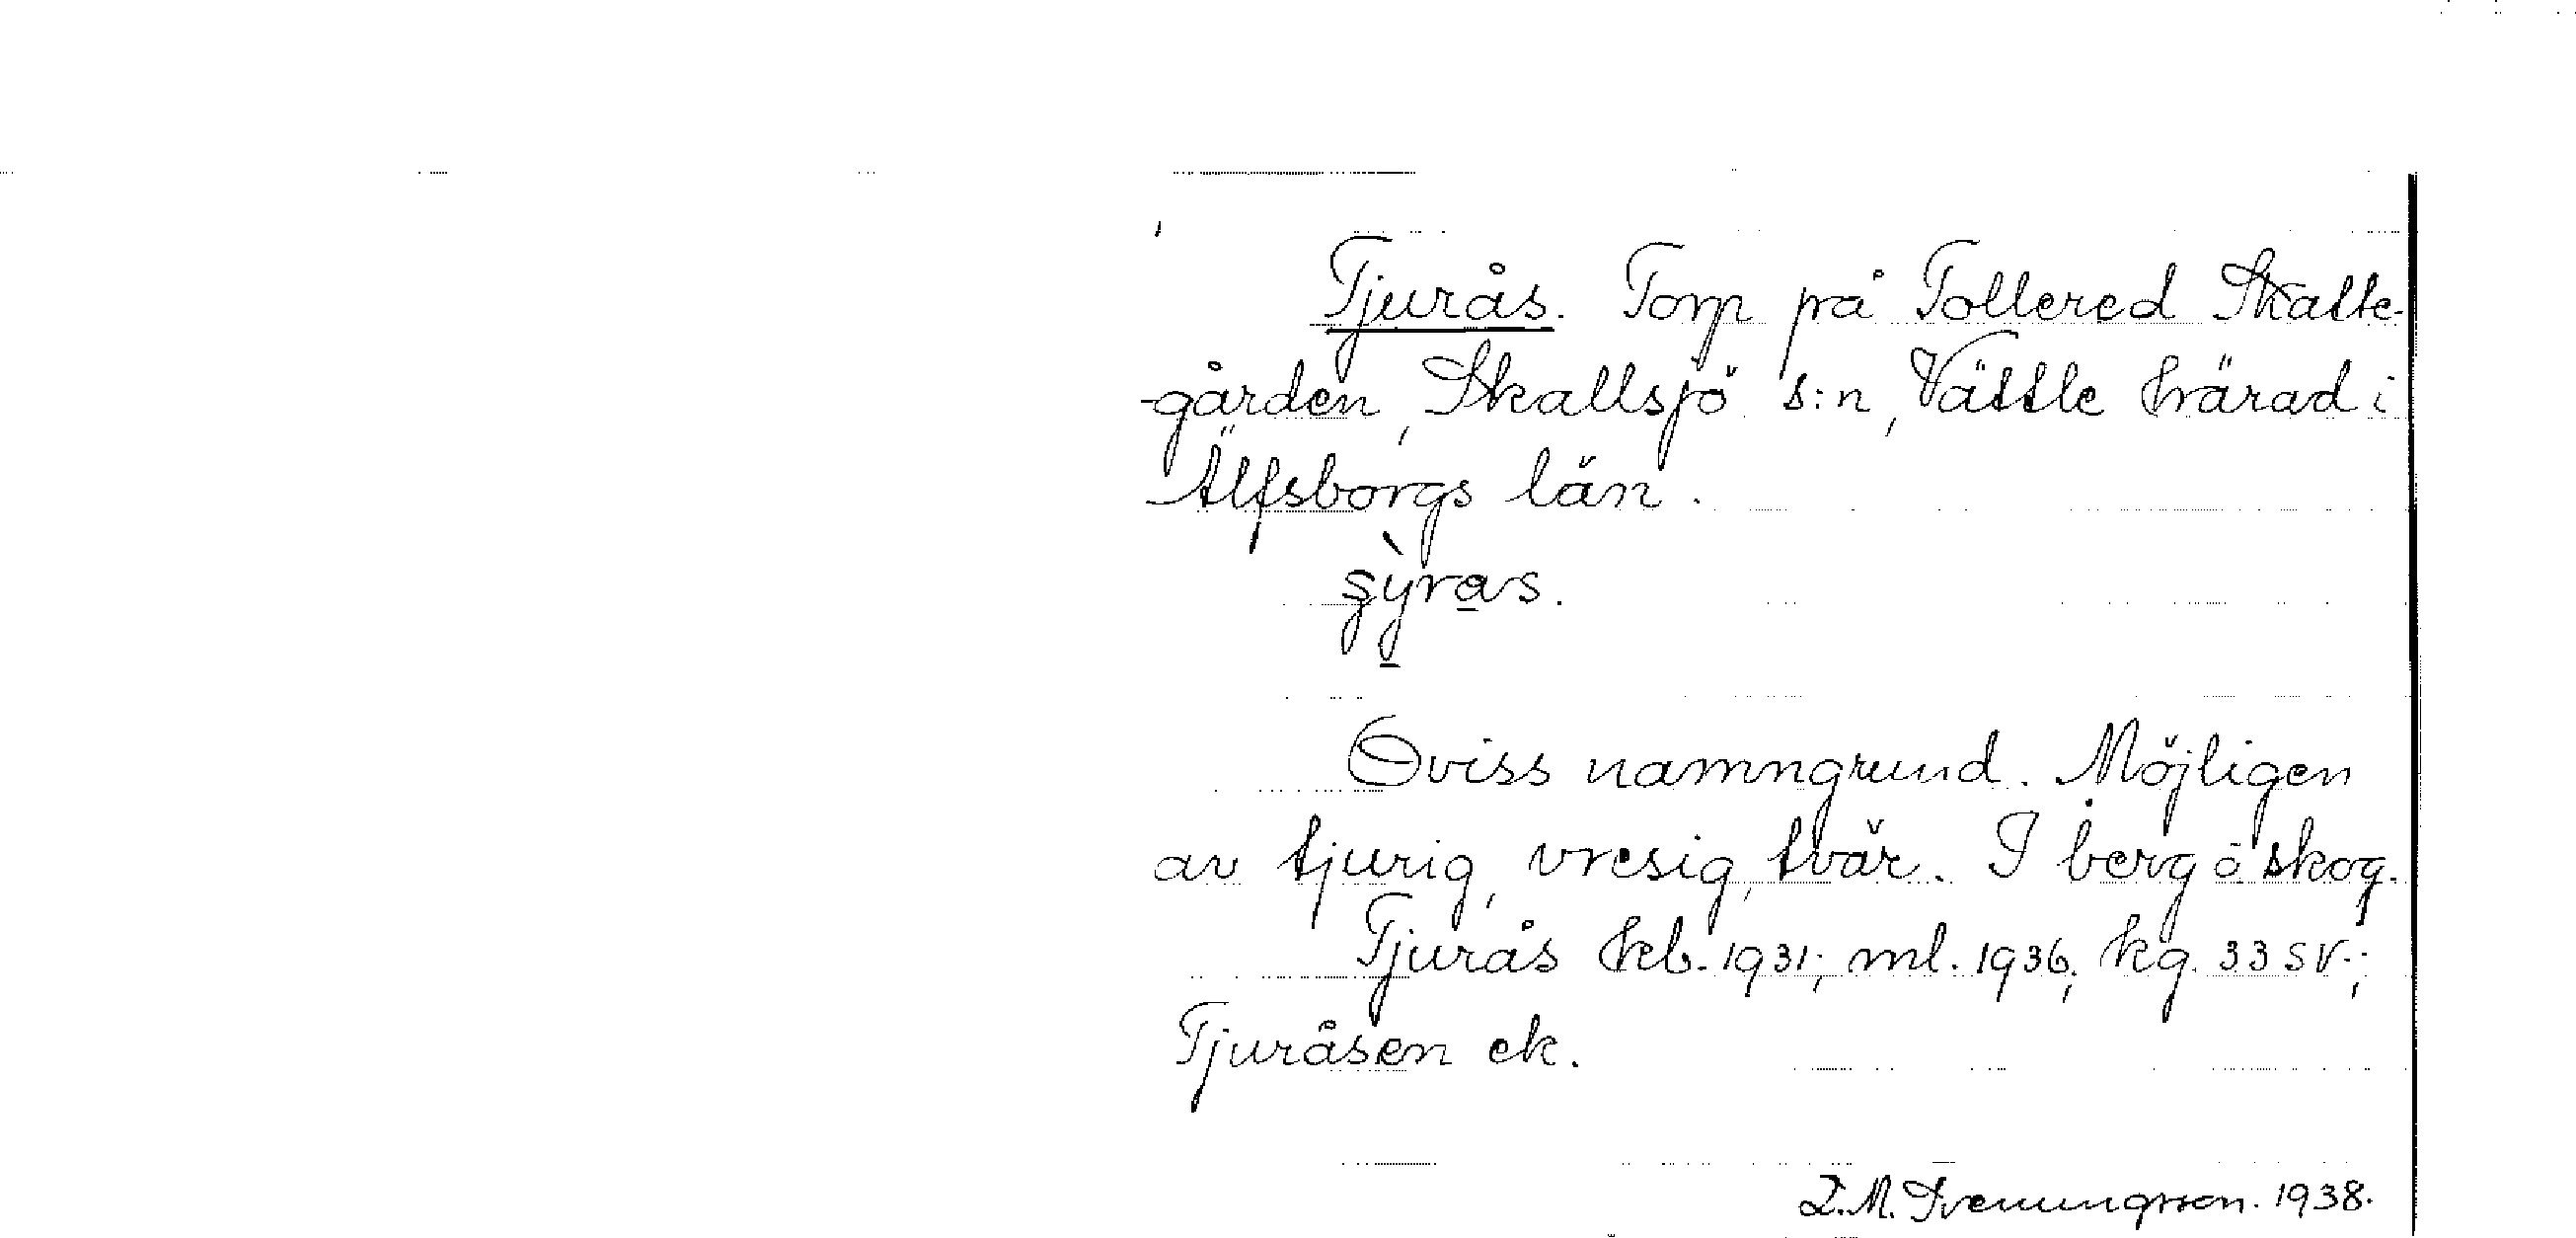 Tjurås. Torp på Tollered Skatte-
-gården, Skallsjö s:n, Vättle härad i
Älfsborgs län.
Oviss namngrund. Möjligen
av tjurig, vresig, tvär. I berg o skog.
Tjurås hkb. 1931; ml. 1936; kg. 33 SV.;
Tjuråsen ek.
D.M. Svenungsson. 1938.